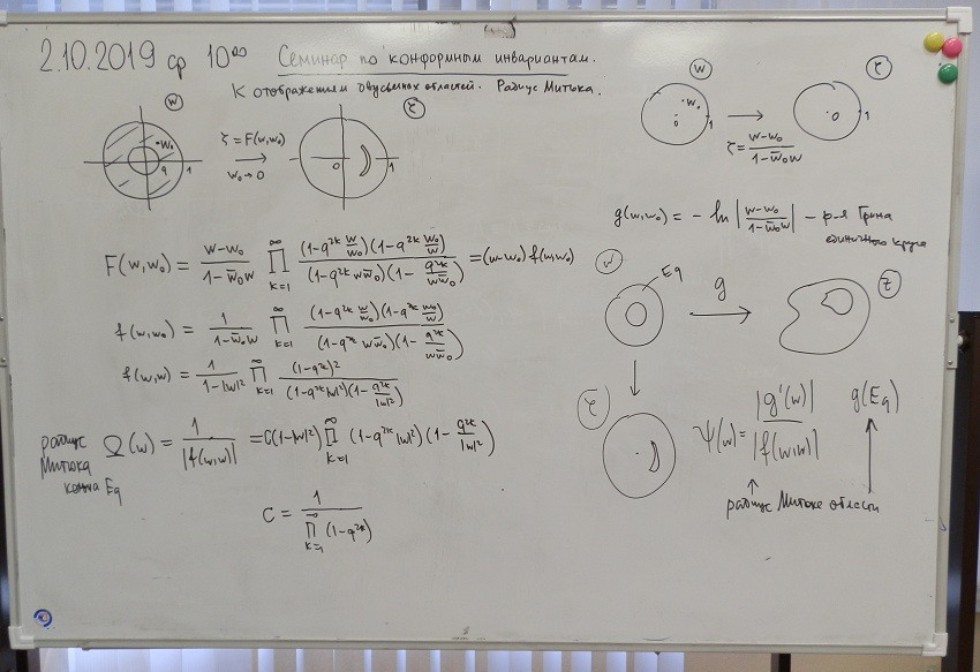 2.10.2019 ср 10⁰⁰ Семинар по конформным инвариантам.
К отображениям двусвязных областей. Радиус Митюка.
w
ζ
w₀
q
1
ζ = F(w,w₀)
w₀→0
0
1
w
w₀
0
1
ζ = \frac{w-w₀}{1-\bar{w}₀w}
ζ
0
1
g(w,w₀) = - ln |\frac{w-w₀}{1-\bar{w}₀w}| - ф-я Грина
единичного круга
F(w,w₀) = \frac{w-w₀}{1-\bar{w}₀w} \prod_{k=1}^{∞} \frac{(1-q^{2k}\frac{w}{w₀})(1-q^{2k}\frac{w₀}{w})}{(1-q^{2k}w\bar{w}₀)(1-\frac{q^{2k}}{w\bar{w}₀})} = (w-w₀) f(w,w₀)
f(w,w₀) = \frac{1}{1-\bar{w}₀w} \prod_{k=1}^{∞} \frac{(1-q^{2k}\frac{w}{w₀})(1-q^{2k}\frac{w₀}{w})}{(1-q^{2k}w\bar{w}₀)(1-\frac{q^{2k}}{w\bar{w}₀})}
f(w,w) = \frac{1}{1-|w|²} \prod_{k=1}^{∞} \frac{(1-q^{2k})²}{(1-q^{2k}|w|²)(1-\frac{q^{2k}}{|w|²})}
радиус
Митюка
кольца Eq
Ω(w) = \frac{1}{|f(w,w)|} = C(1-|w|²) \prod_{k=1}^{∞} (1-q^{2k}|w|²)(1-\frac{q^{2k}}{|w|²})
C = \frac{1}{\prod_{k=1}^{∞} (1-q^{2k})}
w
Eq
g
z
ζ
Ψ(w) = \frac{|g'(w)|}{|f(w,w)|}
g(Eq)
радиус Митюка области